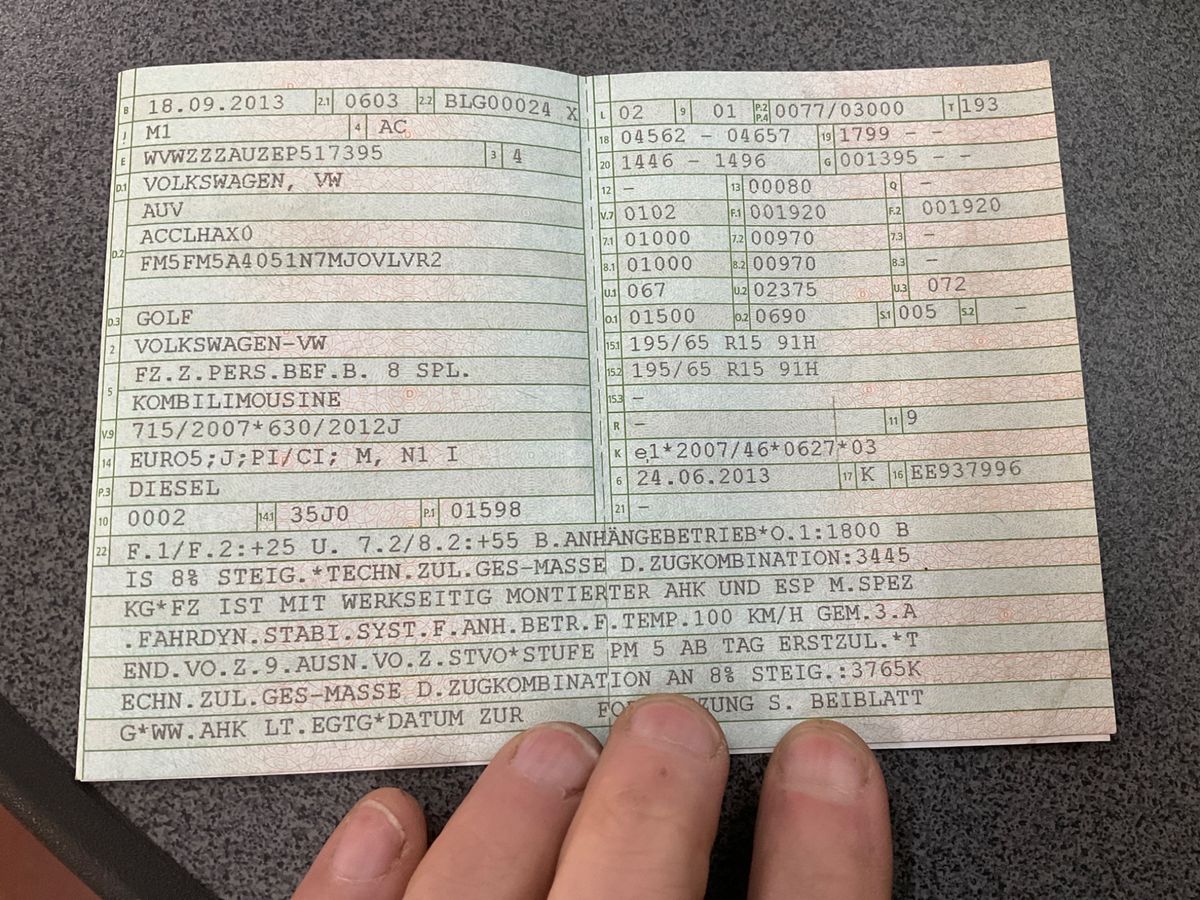 B 18.09.2013 2.1 0603 2.2 BLG00024 X
J M1 4 AC
E WVWZZZAUZEP517395 3 4
D.1 VOLKSWAGEN, VW
AUV
D.2 ACCLHAX0
FM5FM5A4051N7MJOVLVR2
D.3 GOLF
2 VOLKSWAGEN-VW
5 FZ.Z.PERS.BEF.B. 8 SPL.
KOMBILIMOUSINE
V.9 715/2007*630/2012J
14 EURO5;J;PI/CI; M, N1 I
P.3 DIESEL
10 0002 14.1 35J0 P.1 01598
L 02 9 01 P.2 P.4 0077/03000 T 193
18 04562 - 04657 19 1799 - -
20 1446 - 1496 G 001395 - -
12 - 13 00080 Q -
V.7 0102 F.1 001920 F.2 001920
7.1 01000 7.2 00970 7.3 -
8.1 01000 8.2 00970 8.3 -
U.1 067 U.2 02375 U.3 072
O.1 01500 O.2 0690 S.1 005 S.2 -
15.1 195/65 R15 91H
15.2 195/65 R15 91H
15.3 -
R - 11 9
K e1*2007/46*0627*03
6 24.06.2013 17 K 16 EE937996
21 -
22 F.1/F.2:+25 U. 7.2/8.2:+55 B.ANHÄNGEBETRIEB*O.1:1800 B
IS 8% STEIG.*TECHN.ZUL.GES-MASSE D.ZUGKOMBINATION:3445
KG*FZ IST MIT WERKSEITIG MONTIERTER AHK UND ESP M.SPEZ
.FAHRDYN.STABI.SYST.F.ANH.BETR.F.TEMP.100 KM/H GEM.3.A
END.VO.Z.9.AUSN.VO.Z.STVO*STUFE PM 5 AB TAG ERSTZUL.*T
ECHN.ZUL.GES-MASSE D.ZUGKOMBINATION AN 8% STEIG.:3765K
G*WW.AHK LT.EGTG*DATUM ZUR S. BEIBLATT